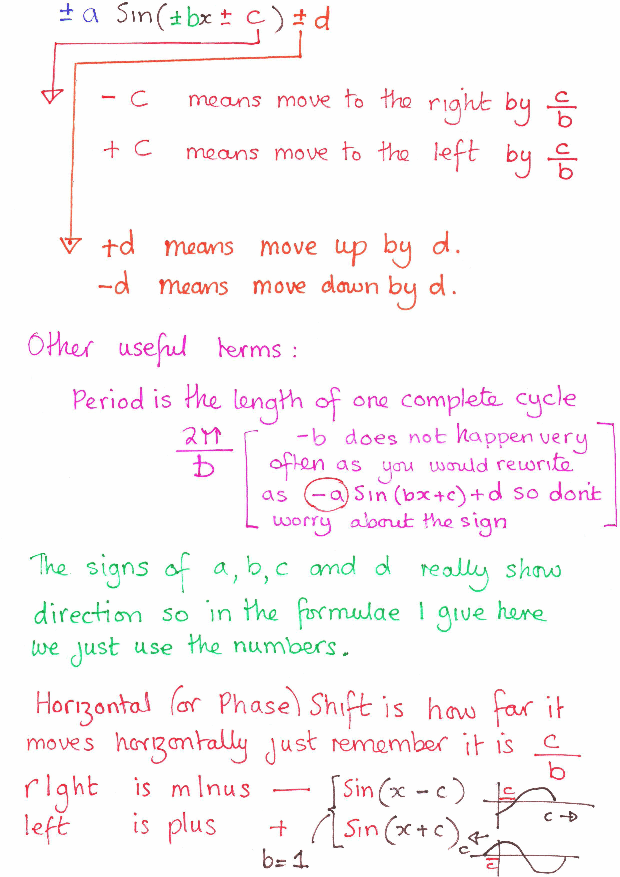 ± a Sin(±bx ± c) ± d
- C means move to the right by c/b
+ C means move to the left by c/b
+d means move up by d.
-d means move down by d.
Other useful terms :
Period is the length of one complete cycle
2π/b [ -b does not happen very
often as you would rewrite
as -a Sin(bx+c)+d so don't
worry about the sign ]
The signs of a, b, c and d really show
direction so in the formulae I give here
we just use the numbers.
Horizontal (or Phase) Shift is how far it
moves horizontally just remember it is c/b
rIght is mInus — Sin(x - c) c c →
left is plus + Sin(x + c) c ← c
b=1